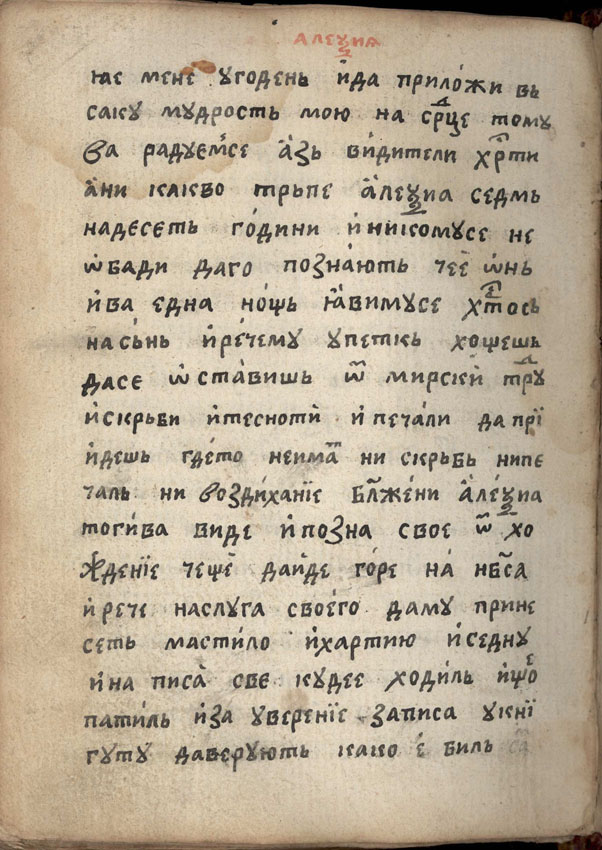 АЛЕѮИѦ
ꙗе мене угодень и҆да прило́жи вь
саку мудрость мою на ср҃це тому
ва радуем҃се а҆зь ви́дители хр҃ти
а҆ни какво трьпе а҆леѯиа седмь
надесеть го́дини и҆ никомусе не
ѡ҆бади даго позна́ють чее ѡ҆нь
и҆ва една но́щь ꙗ҆вимусе хс҃тось
на сьнь и҆ре́чему упеткь хощешь
дасе ѡ҆ста́вишь ѿ мирски тру
и҆скрьби и҆тесноти и҆ печа́ли да прі
и҆дешь где́то неима ни скрьбь нипе
чаль ни воздиха́нїе бл҃жени а҆ле́ѯиа
тоги́ва виде и҆позна свое ѿ хо
жденїе чеще да и҆де го́ре на́ нб҃са
и҆ рече наслуга свое́го даму прине
сеть мастило и҆хартию и҆седну
и҆на писа̀ све кудее ходи́ль и҆що
пати́ль и҆за увере́нїе записа у кнї
гуту даверу́ють како е́ биль